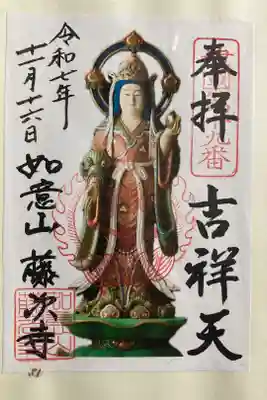 奉拝
九番
吉祥天
如意山 藤次寺
令和七年
十一月十六日